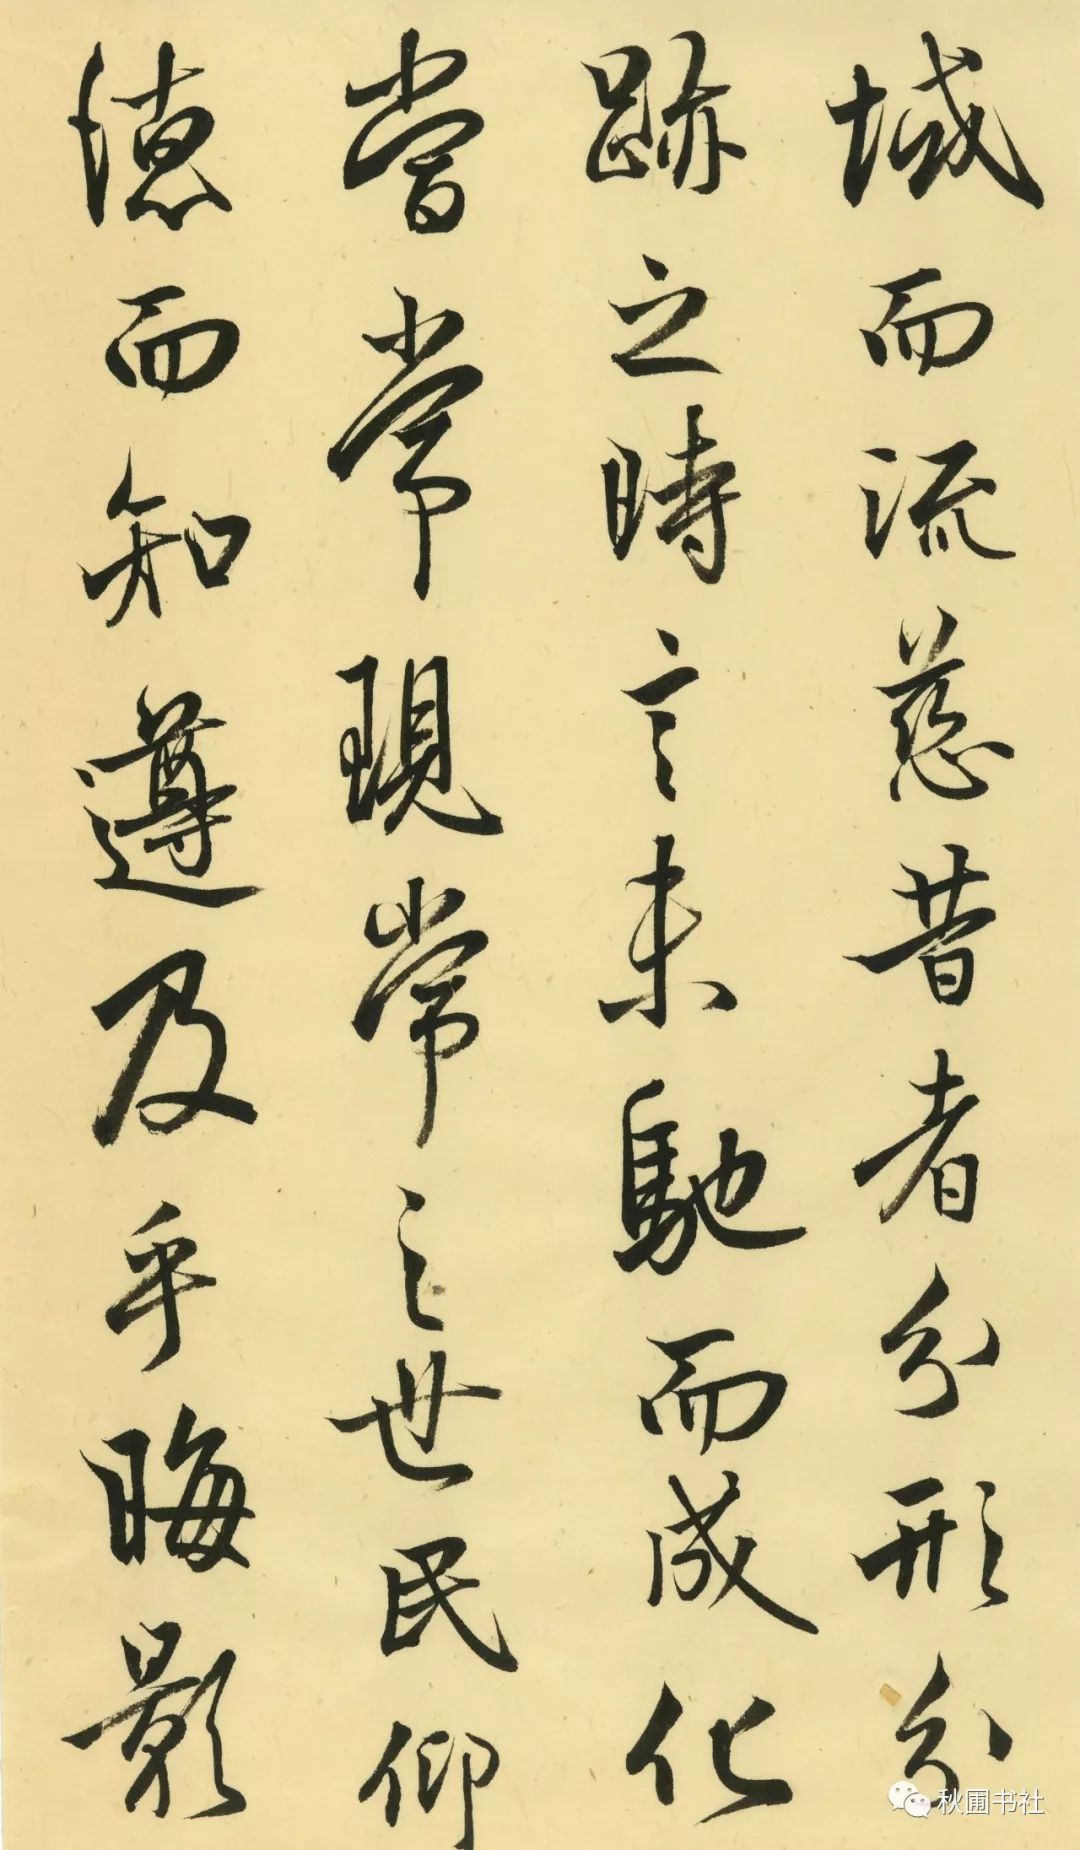 域而流慈昔者分形分
跡之時言未馳而成化
當常現常之世民仰
徳而知遵及乎晦影
秋圃书社